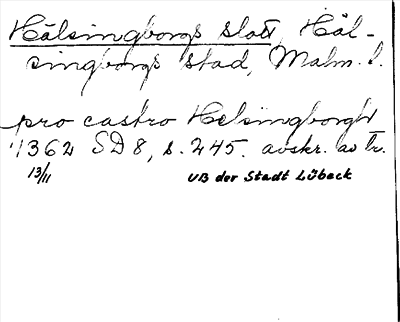 Hälsingborgs slott, Häl-
singborgs stad, Malm. l.
pro castro Helsingborgh
1362 SD 8, s. 245. avskr. av tr.
13/11 UB der Stadt Lübeck